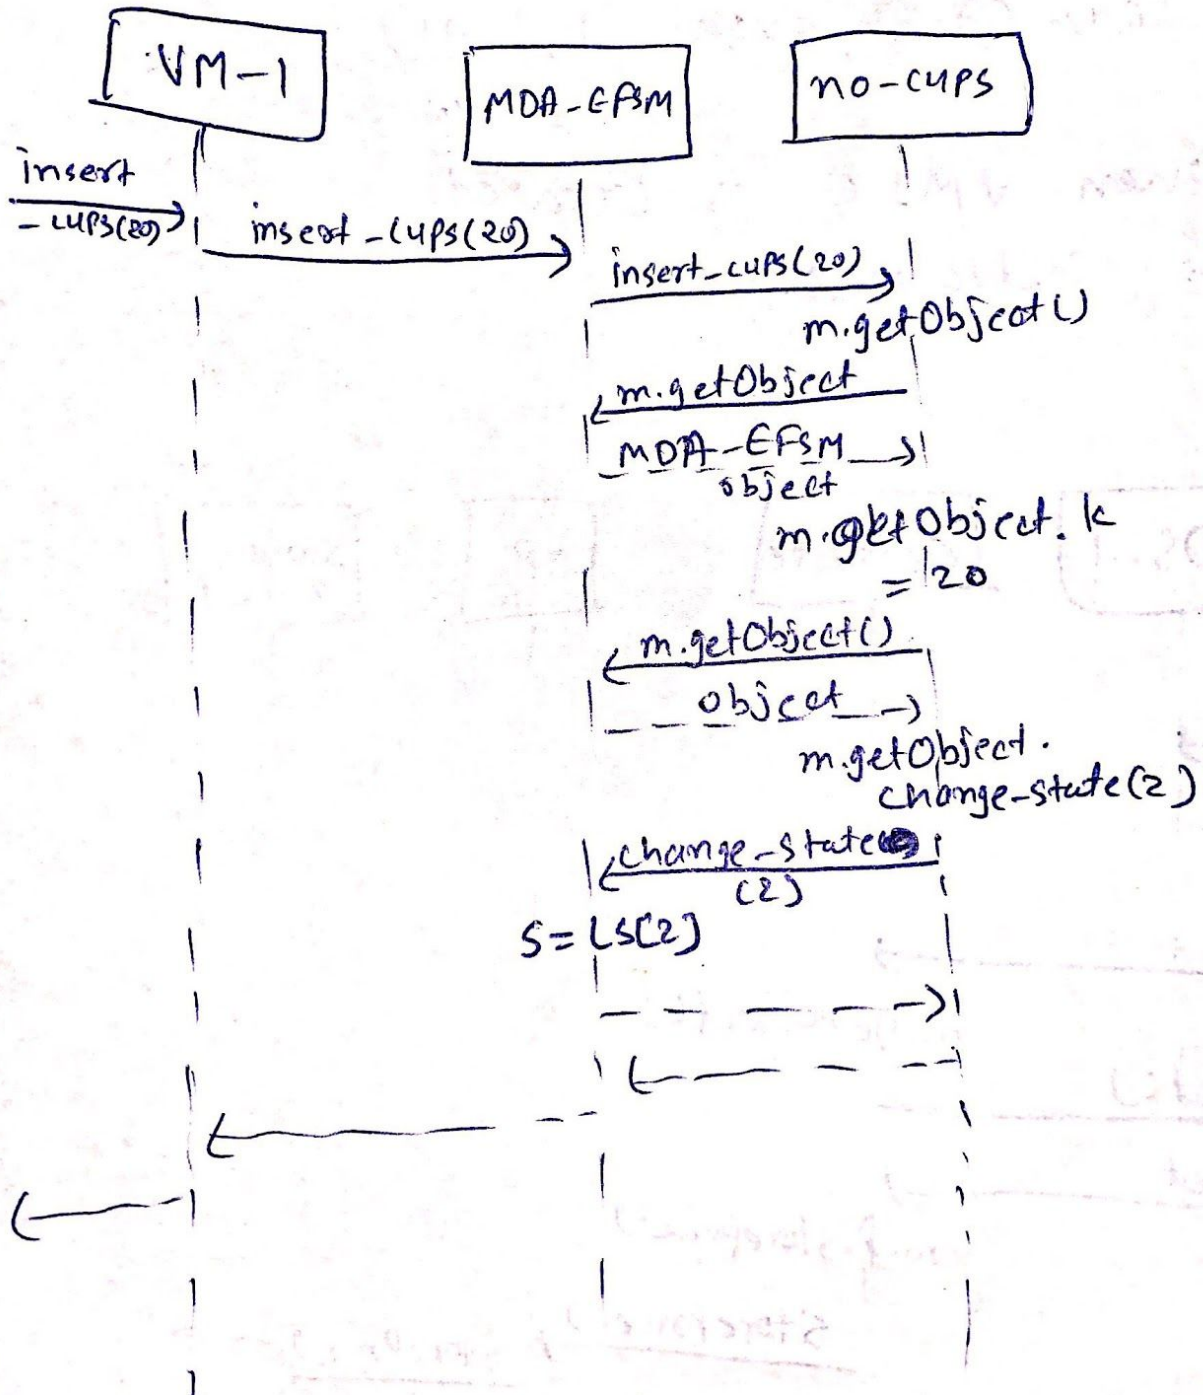 VM-1
MDA-EFSM
no-cups
insert
-cups(20)
insert-cups(20)
insert-cups(20)
m.getObject()
m.getObject
MDA-EFSM
object
m.getObject.k
= 20
m.getObject()
object
m.getObject.
change-state(2)
change-state
(2)
S=LS[2]